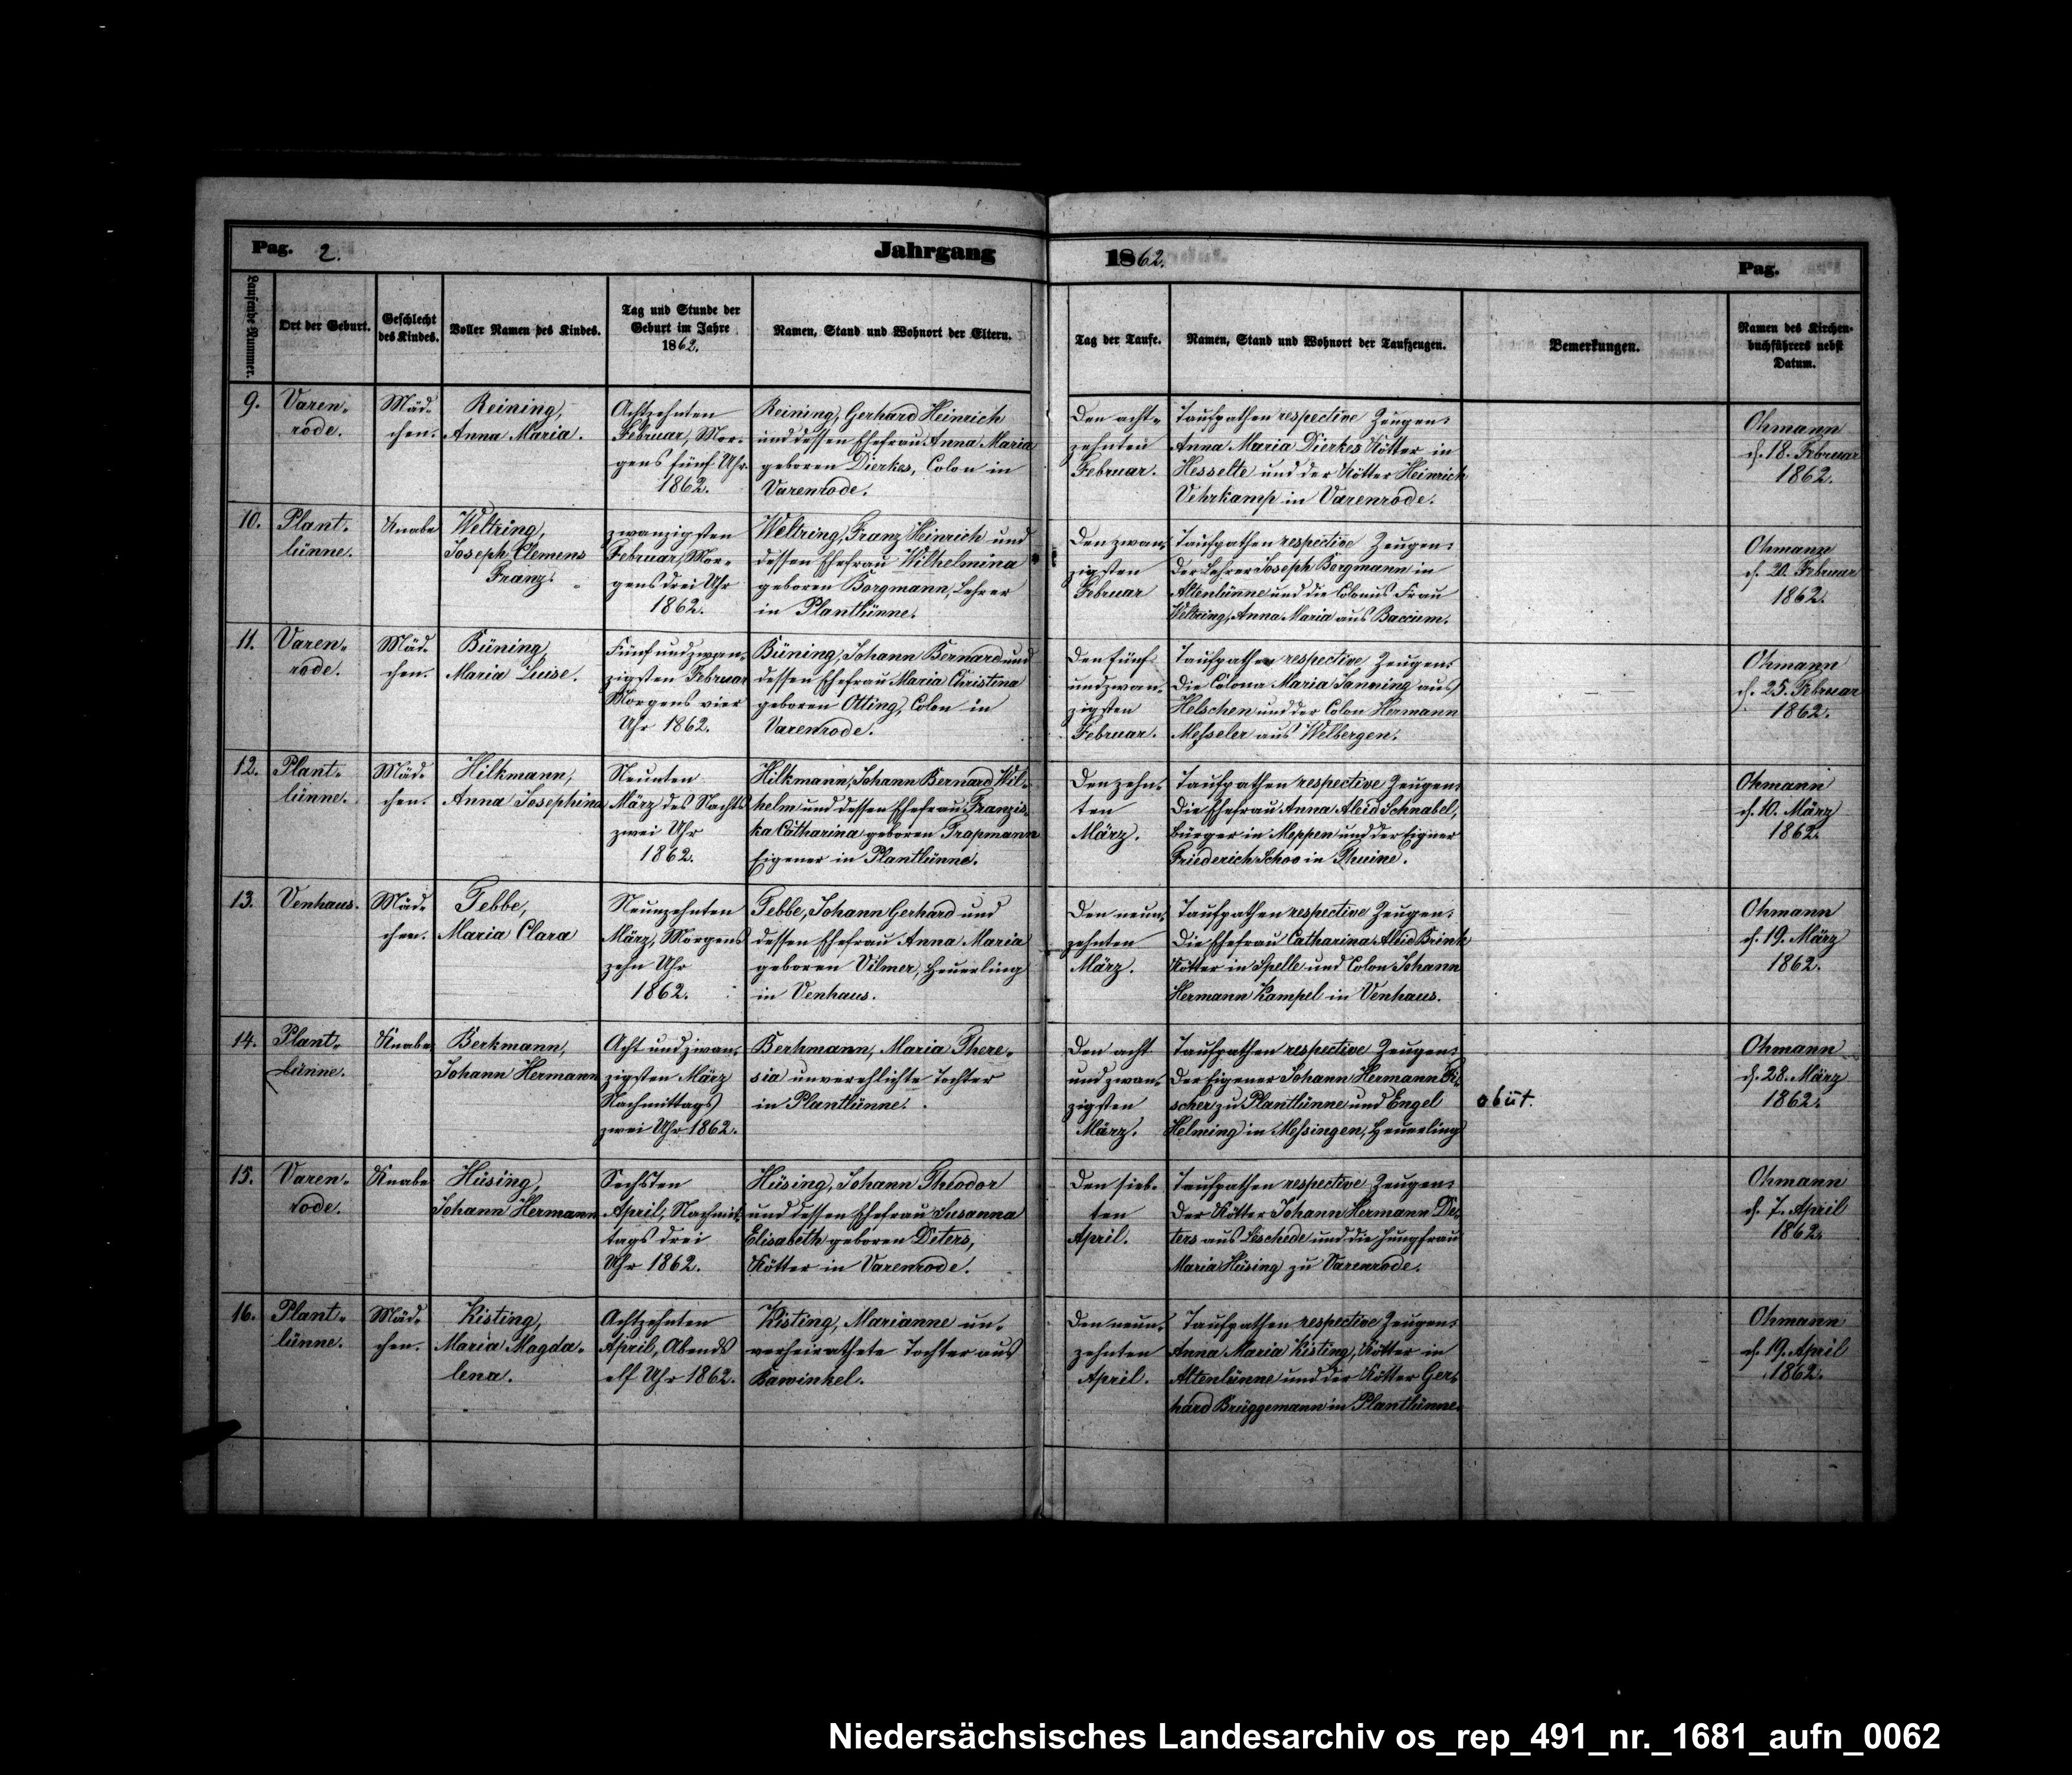 Pag. 2.
Jahrgang 1862.
Pag.
Laufende Nummer.
Ort der Geburt.
Geschlecht
des Kindes.
Voller Namen des Kindes.
Tag und Stunde der
Geburt im Jahre
1862.
Namen, Stand und Wohnort der Eltern.
Tag der Taufe.
Namen, Stand und Wohnort der Taufzeugen.
Bemerkungen.
Namen des Kirchen-
buchführers nebst
Datum.
9.
Varen-
rode.
Mäd-
chen.
Reining,
Anna Maria.
Achtzehnten
Februar, Mor-
gens fünf Uhr
1862.
Reining, Gerhard Heinrich
und dessen Ehefrau Anna Maria
geboren Dierkes, Colon in
Varenrode.
Den acht-
zehnten
Februar.
Taufpathen respective Zeugen:
Anna Maria Dierkes Kötter in
Hesselte und der Kötter Heinrich
Vehrkamp in Varenrode.
Ohmann
d. 18. Februar
1862.
10.
Plant-
lünne.
Knabe
Weltring,
Joseph Clemens
Franz.
zwanzigsten
Februar, Mor-
gens drei Uhr
1862.
Weltring, Franz Heinrich und
dessen Ehefrau Wilhelmina
geboren Borgmann, Lehrer
in Plantlünne.
Den zwan-
zigsten
Februar
Taufpathen respective Zeugen:
Der Lehrer Joseph Borgmann in
Altenlünne und die Colonus Frau
Weltring, Anna Maria aus Baccum.
Ohmann
d. 20. Februar
1862.
11.
Varen-
rode.
Mäd-
chen.
Büning,
Maria Luise.
Fünfundzwan-
zigsten Februar
Morgens vier
Uhr 1862.
Büning, Johann Bernard und
dessen Ehefrau Maria Christina
geboren Otting, Colon in
Varenrode.
Den fünf-
undzwan-
zigsten
Februar.
Taufpathen respective Zeugen:
Die Colona Maria Janning aus
Helschen und der Colon Hermann
Messeler aus Welbergen.
Ohmann
d. 25. Februar
1862.
12.
Plant-
lünne.
Mäd-
chen.
Hilkmann,
Anna Josephina
Neunten
März des Nachts
zwei Uhr
1862.
Hilkmann, Johann Bernard Wil-
helm und dessen Ehefrau Franzis-
ka Catharina geboren Tropmann
Eigener in Plantlünne.
Den zehn-
ten
März.
Taufpathen respective Zeugen:
Die Ehefrau Anna Aleid Schnabel,
Bürger in Meppen und der Eigner
Friederich Schoo in Thuine.
Ohmann
d. 10. März
1862.
13.
Venhaus.
Mäd-
chen.
Tebbe,
Maria Clara
Neunzehnten
März, Morgens
zehn Uhr
1862.
Tebbe, Johann Gerhard und
dessen Ehefrau Anna Maria
geboren Vilmer, Heuerling
in Venhaus.
Den neun-
zehnten
März.
Taufpathen respective Zeugen:
Die Ehefrau Catharina Aleid Brink
Kötter in Spelle und Colon Johann
Hermann Kampel in Venhaus.
Ohmann
d. 19. März
1862.
14.
Plant-
lünne.
Knabe
Berkmann,
Johann Hermann
Acht und zwan-
zigsten März
Nachmittags
zwei Uhr 1862.
Berkmann, Maria There-
sia unverehlichte Tochter
in Plantlünne.
Den acht
und zwan-
zigsten
März.
Taufpathen respective Zeugen:
Der Eigener Johann Hermann Fi-
scher zu Plantlünne und Engel
Helming in Messingen, Heuerling
obiit.
Ohmann
d. 28. März
1862.
15.
Varen-
rode.
Knabe
Hüsing,
Johann Hermann
Sechsten
April, Nachmit-
tags drei
Uhr 1862.
Hüsing, Johann Theodor
und dessen Ehefrau Susanna
Elisabeth geboren Deters,
Kötter in Varenrode.
Den sieb-
ten
April.
Taufpathen respective Zeugen:
Der Kötter Johann Hermann De-
ters aus Leschede und die Jungfrau
Maria Hüsing zu Varenrode.
Ohmann
d. 7. April
1862.
16.
Plant-
lünne.
Mäd-
chen.
Kisting,
Maria Magda-
lena.
Achtzehnten
April, Abends
elf Uhr 1862.
Kisting, Marianne un-
verheirathete Tochter aus
Bawinkel.
Den neun-
zehnten
April.
Taufpathen respective Zeugen:
Anna Maria Kisting, Kötter in
Altenlünne und der Kötter Ger-
hard Brüggemann in Plantlünne.
Ohmann
d. 19. April
1862.
Niedersächsisches Landesarchiv os_rep_491_nr._1681_aufn_0062